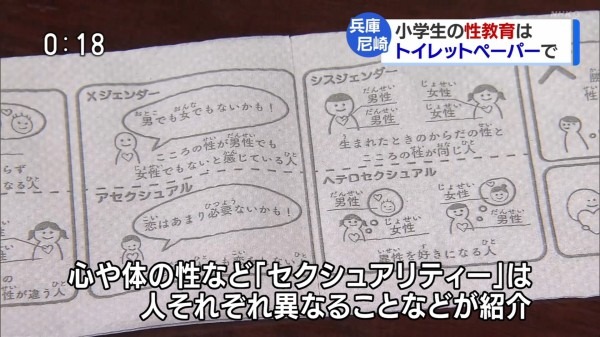 0:18
兵庫
尼崎
小学生の性教育は
トイレットペーパーで
Xジェンダー
男でも女でもないかも!
こころの性が男性でも
女性でもないと感じている人
アセクシュアル
恋はあまり必要ないかも!
シスジェンダー
男性
男性
女性
女性
生まれたときのからだの性と
こころの性が同じ人
ヘテロセクシュアル
男性
女性
女性
男性
異性を好きになる人
らず
なる人
性が違う人
心や体の性など「セクシュアリティー」は
人それぞれ異なることなどが紹介